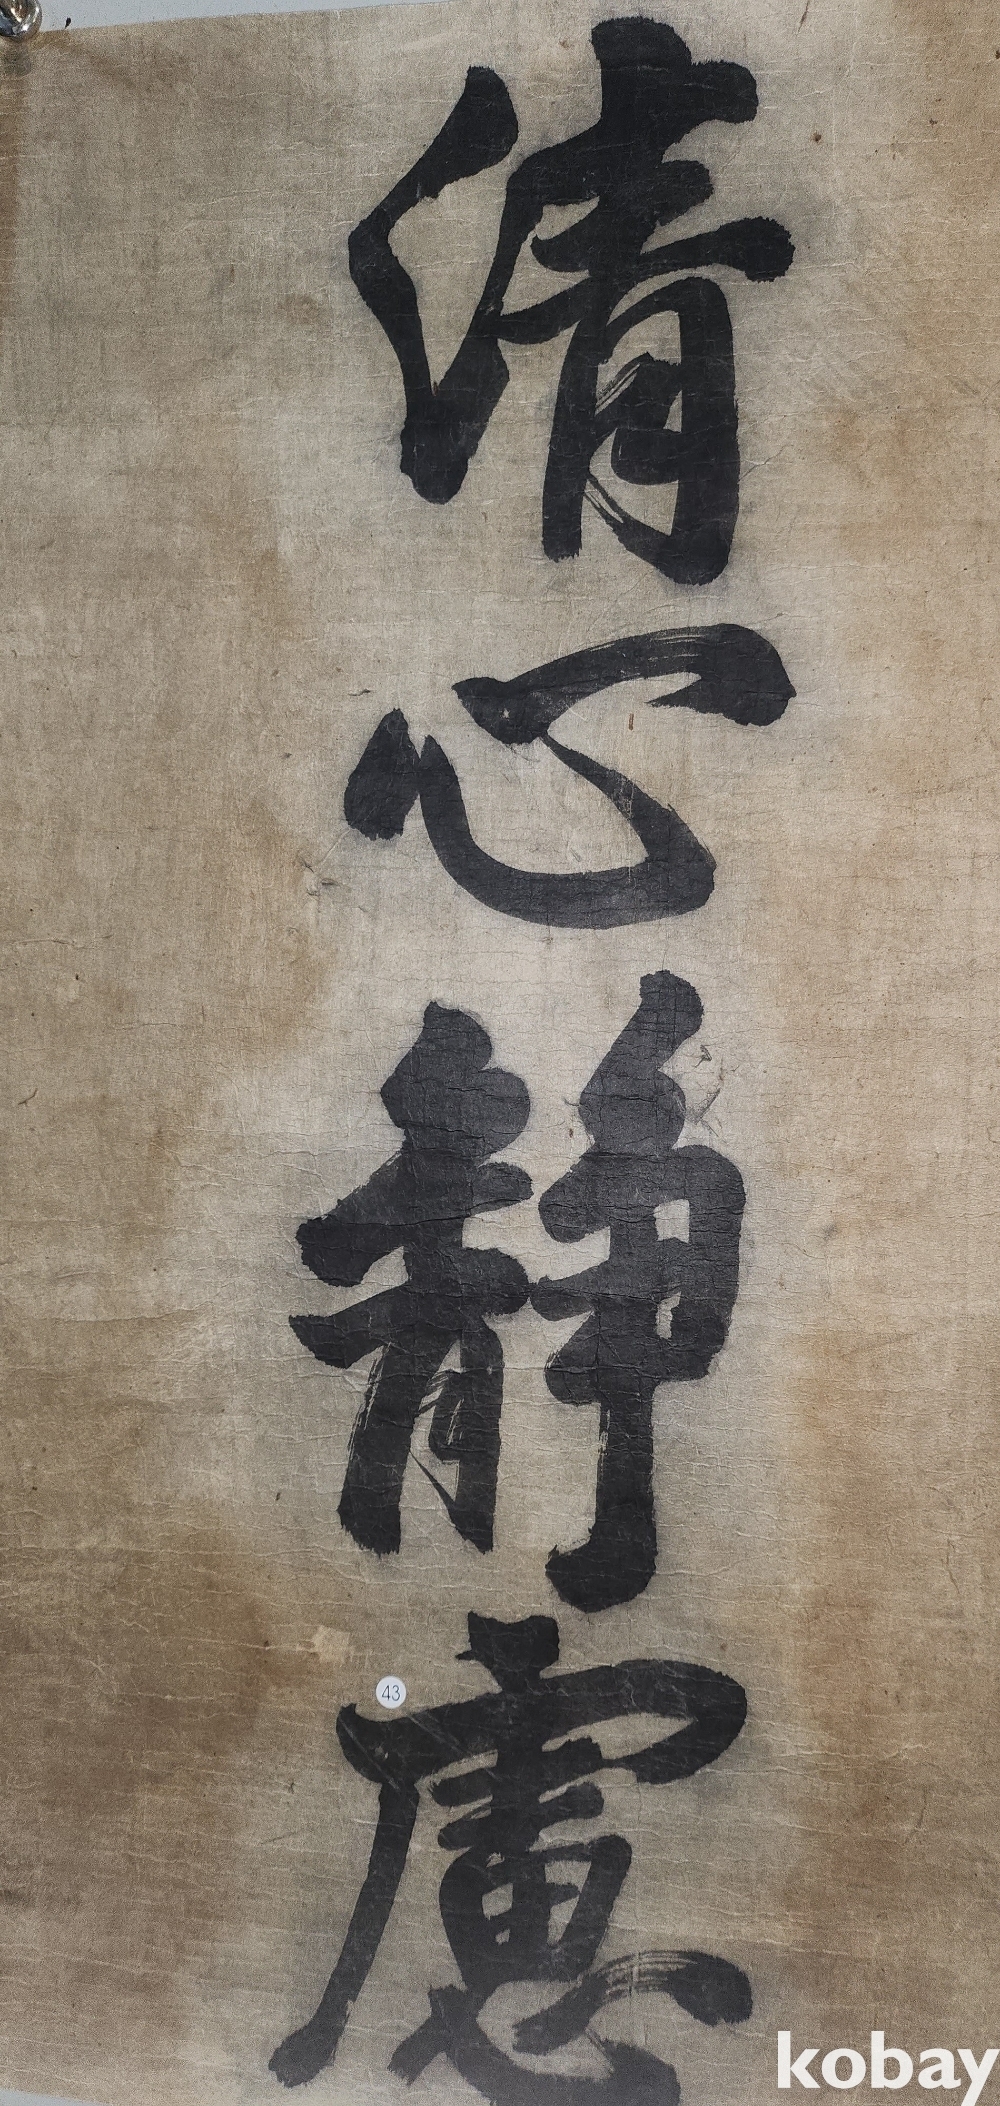 清心靜慮
43
kobay